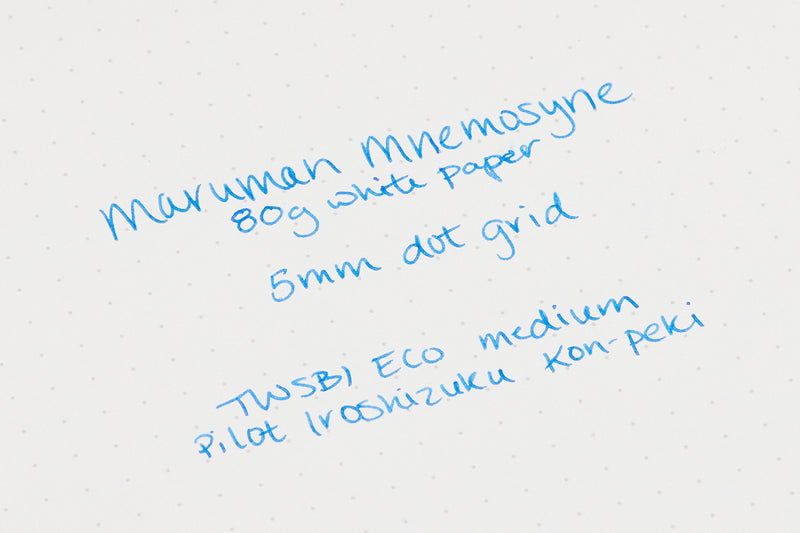 Maruman Mnemosyne
80g white paper
5mm dot grid
TWSBI ECO medium
Pilot Iroshizuku Kon-peki